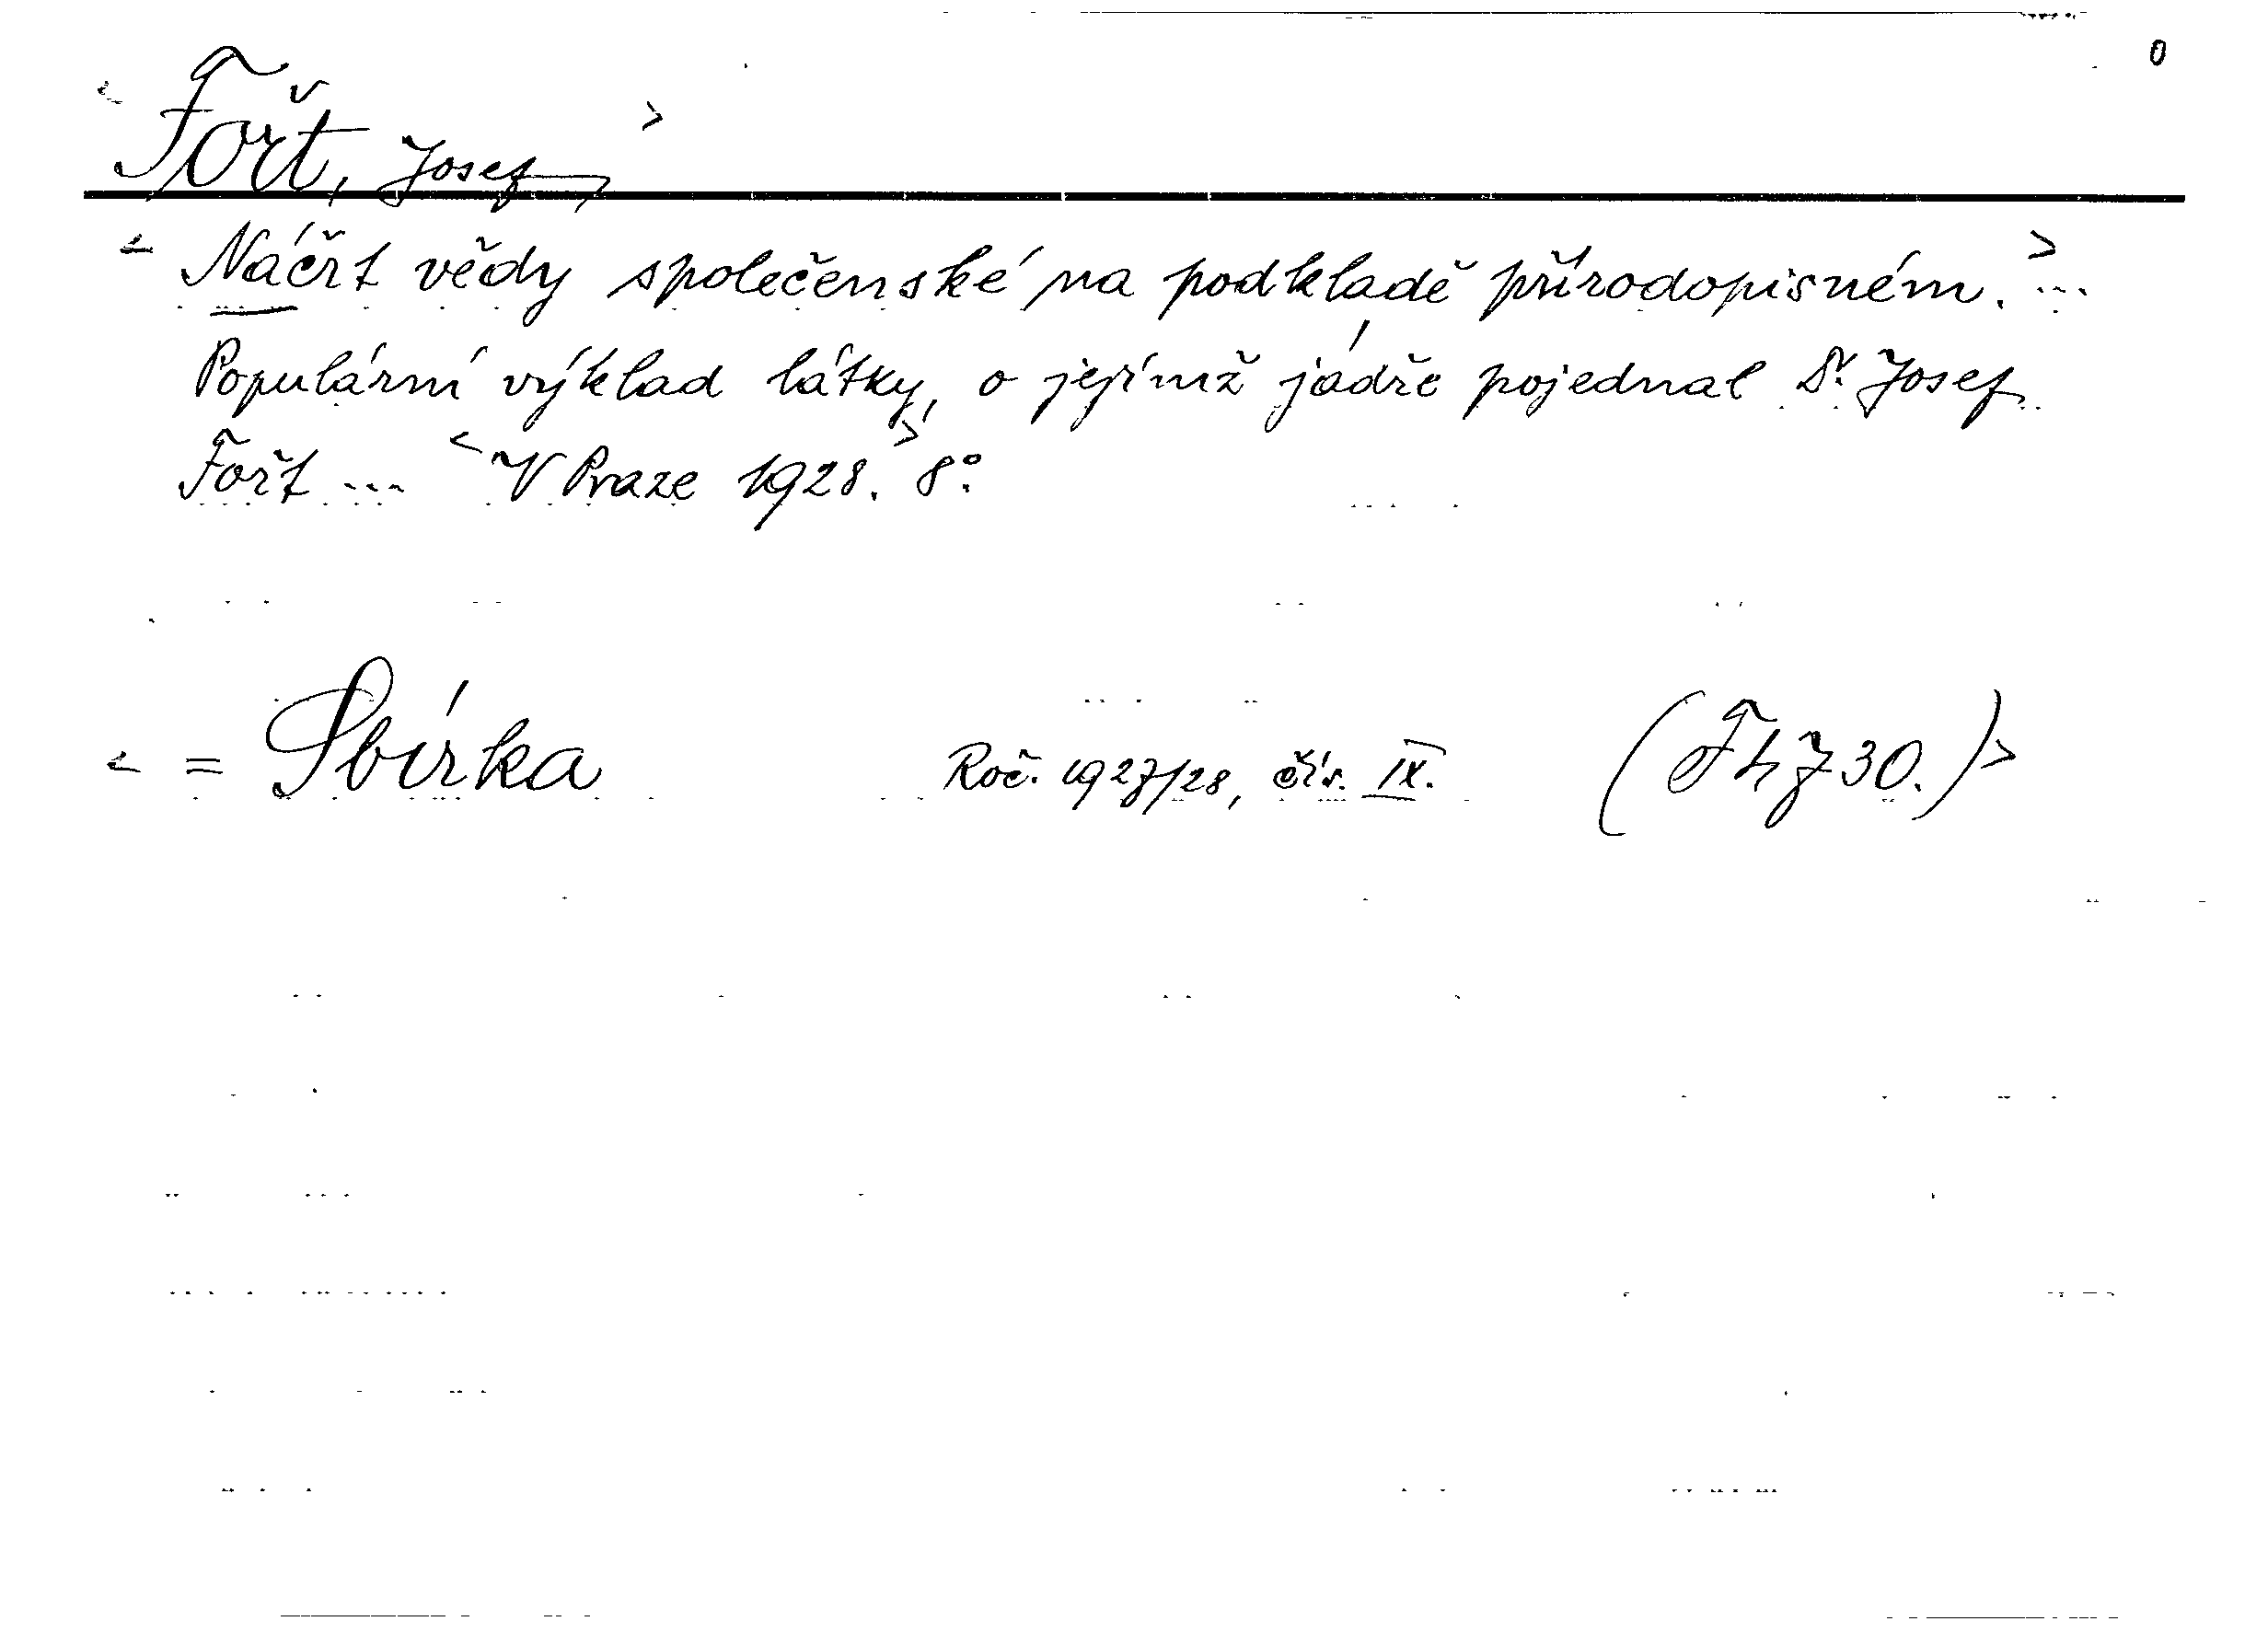 0
< Fořt, Josef, >
< Náčrt vědy společenské na podkladě přírodopisném. > ...
Populární výklad látky, o jejímž jádře pojednal Dr. Josef
Fořt ... < V Praze 1928. > 8°.
< = Sbírka Roč. 1927/28, čís. IX. ( 30.) >